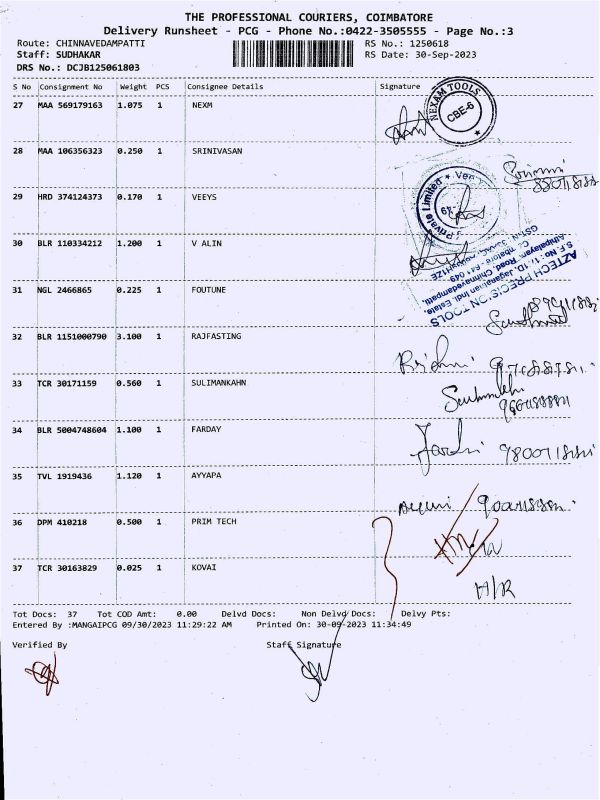 THE PROFESSIONAL COURIERS, COIMBATORE
Delivery Runsheet - PCG - Phone No.:0422-3505555 - Page No.:3
Route: CHINNAVEDAMPATTI
RS No.: 1250618
Staff: SUDHAKAR
RS Date: 30-Sep-2023
DRS No.: DCJB125061803
S No Consignment No Weight PCS Consignee Details Signature
27 MAA 569179163 1.075 1 NEXM
NEXAM TOOLS
CBE-6
28 MAA 106356323 0.250 1 SRINIVASAN
29 HRD 374124373 0.170 1 VEEYS
Private Limited
30 BLR 110334212 1.200 1 V ALIN
AZTECH PRECISION TOOLS
31 NGL 2466865 0.225 1 FOUTUNE
32 BLR 1151000790 3.100 1 RAJFASTING
33 TCR 30171159 0.560 1 SULIMANKAHN
34 BLR 5004748604 1.100 1 FARDAY
35 TVL 1919436 1.120 1 AYYAPA
36 DPM 410218 0.500 1 PRIM TECH
37 TCR 30163829 0.025 1 KOVAI
H/R
Tot Docs: 37 Tot COD Amt: 0.00 Delvd Docs: Non Delvd Docs: Delvy Pts:
Entered By :MANGAIPCG 09/30/2023 11:29:22 AM Printed On: 30-09-2023 11:34:49
Verified By Staff Signature